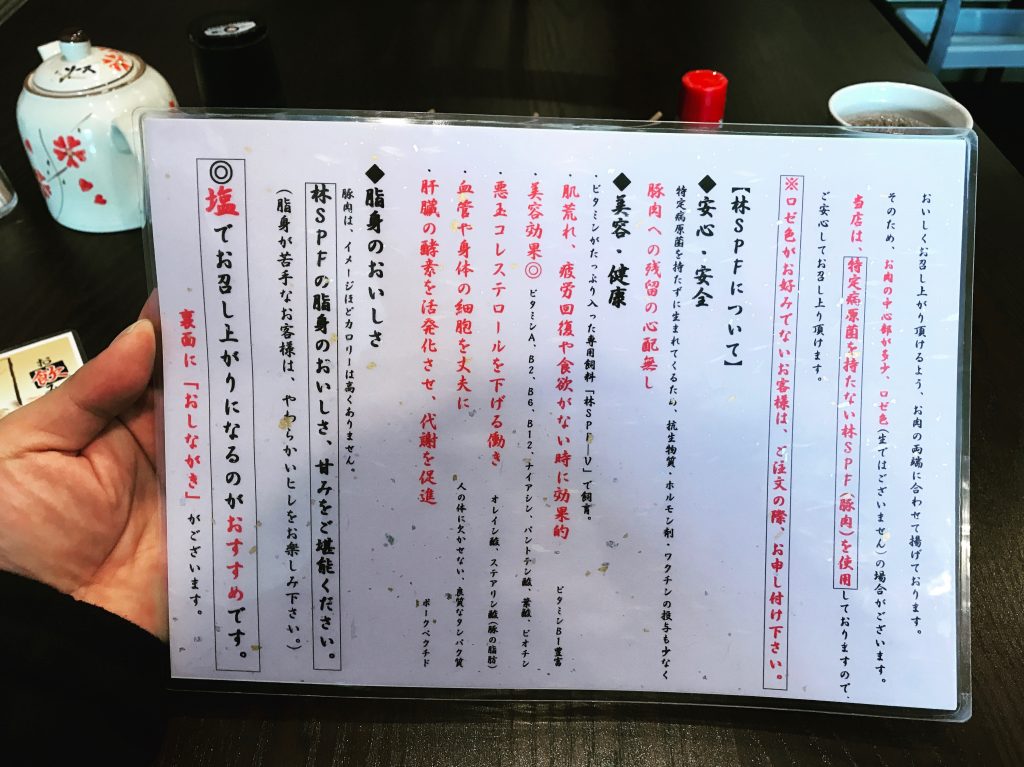 おいしくお召し上がり頂けるよう、お肉の両端に合わせて揚げております。
そのため、お肉の中心部が多少、ロゼ色(生ではございません)の場合がございます。
当店は、特定病原菌を持たない林SPF(豚肉)を使用しておりますので、
ご安心してお召し上り頂けます。
※ロゼ色がお好みでないお客様は、ご注文の際、お申し付け下さい。
【林SPFについて】
◆安心・安全
特定病原菌を持たずに生まれてくるため、抗生物質・ホルモン剤・ワクチンの投与も少なく
豚肉への残留の心配無し
◆美容・健康
・ビタミンがたっぷり入った専用飼料「林SPF-V」で飼育。
・肌荒れ、疲労回復や食欲がない時に効果的 ビタミンB1豊富
・美容効果◎ ビタミンA、B2、B6、B12、ナイアシン、パントテン酸、葉酸、ビオチン
・悪玉コレステロールを下げる働き オレイン酸、ステアリン酸(豚の脂肪)
・血管や身体の細胞を丈夫に 人の体に欠かせない、良質なタンパク質
・肝臓の酵素を活発化させ、代謝を促進 ポークペクチド
◆脂身のおいしさ
豚肉は、イメージほどカロリーは高くありません。
林SPFの脂身のおいしさ、甘みをご堪能ください。
(脂身が苦手なお客様は、やわらかいヒレをお楽しみ下さい。)
◎塩でお召し上がりになるのがおすすめです。
裏面に「おしながき」がございます。
ソース